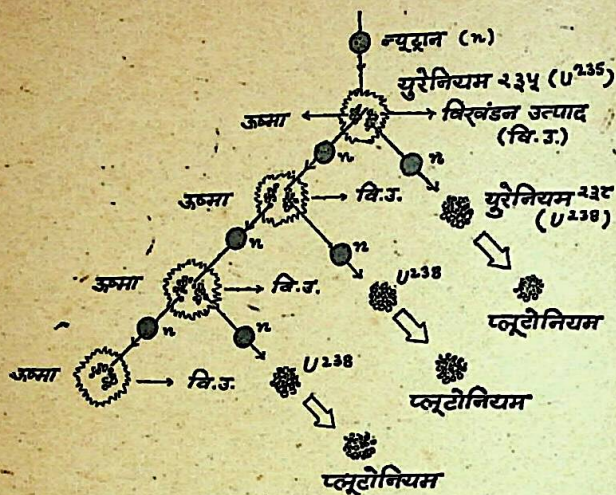 न्यूट्रान (n)
युरेनियम २३५ (U235)
ऊष्मा
विखंडन उत्पाद
(वि.उ.)
n
n
ऊष्मा
वि.उ.
युरेनियम २३८
(U238)
n
n
ऊष्मा
वि.उ.
U238
प्लूटोनियम
n
n
ऊष्मा
वि.उ.
U238
प्लूटोनियम
प्लूटोनियम